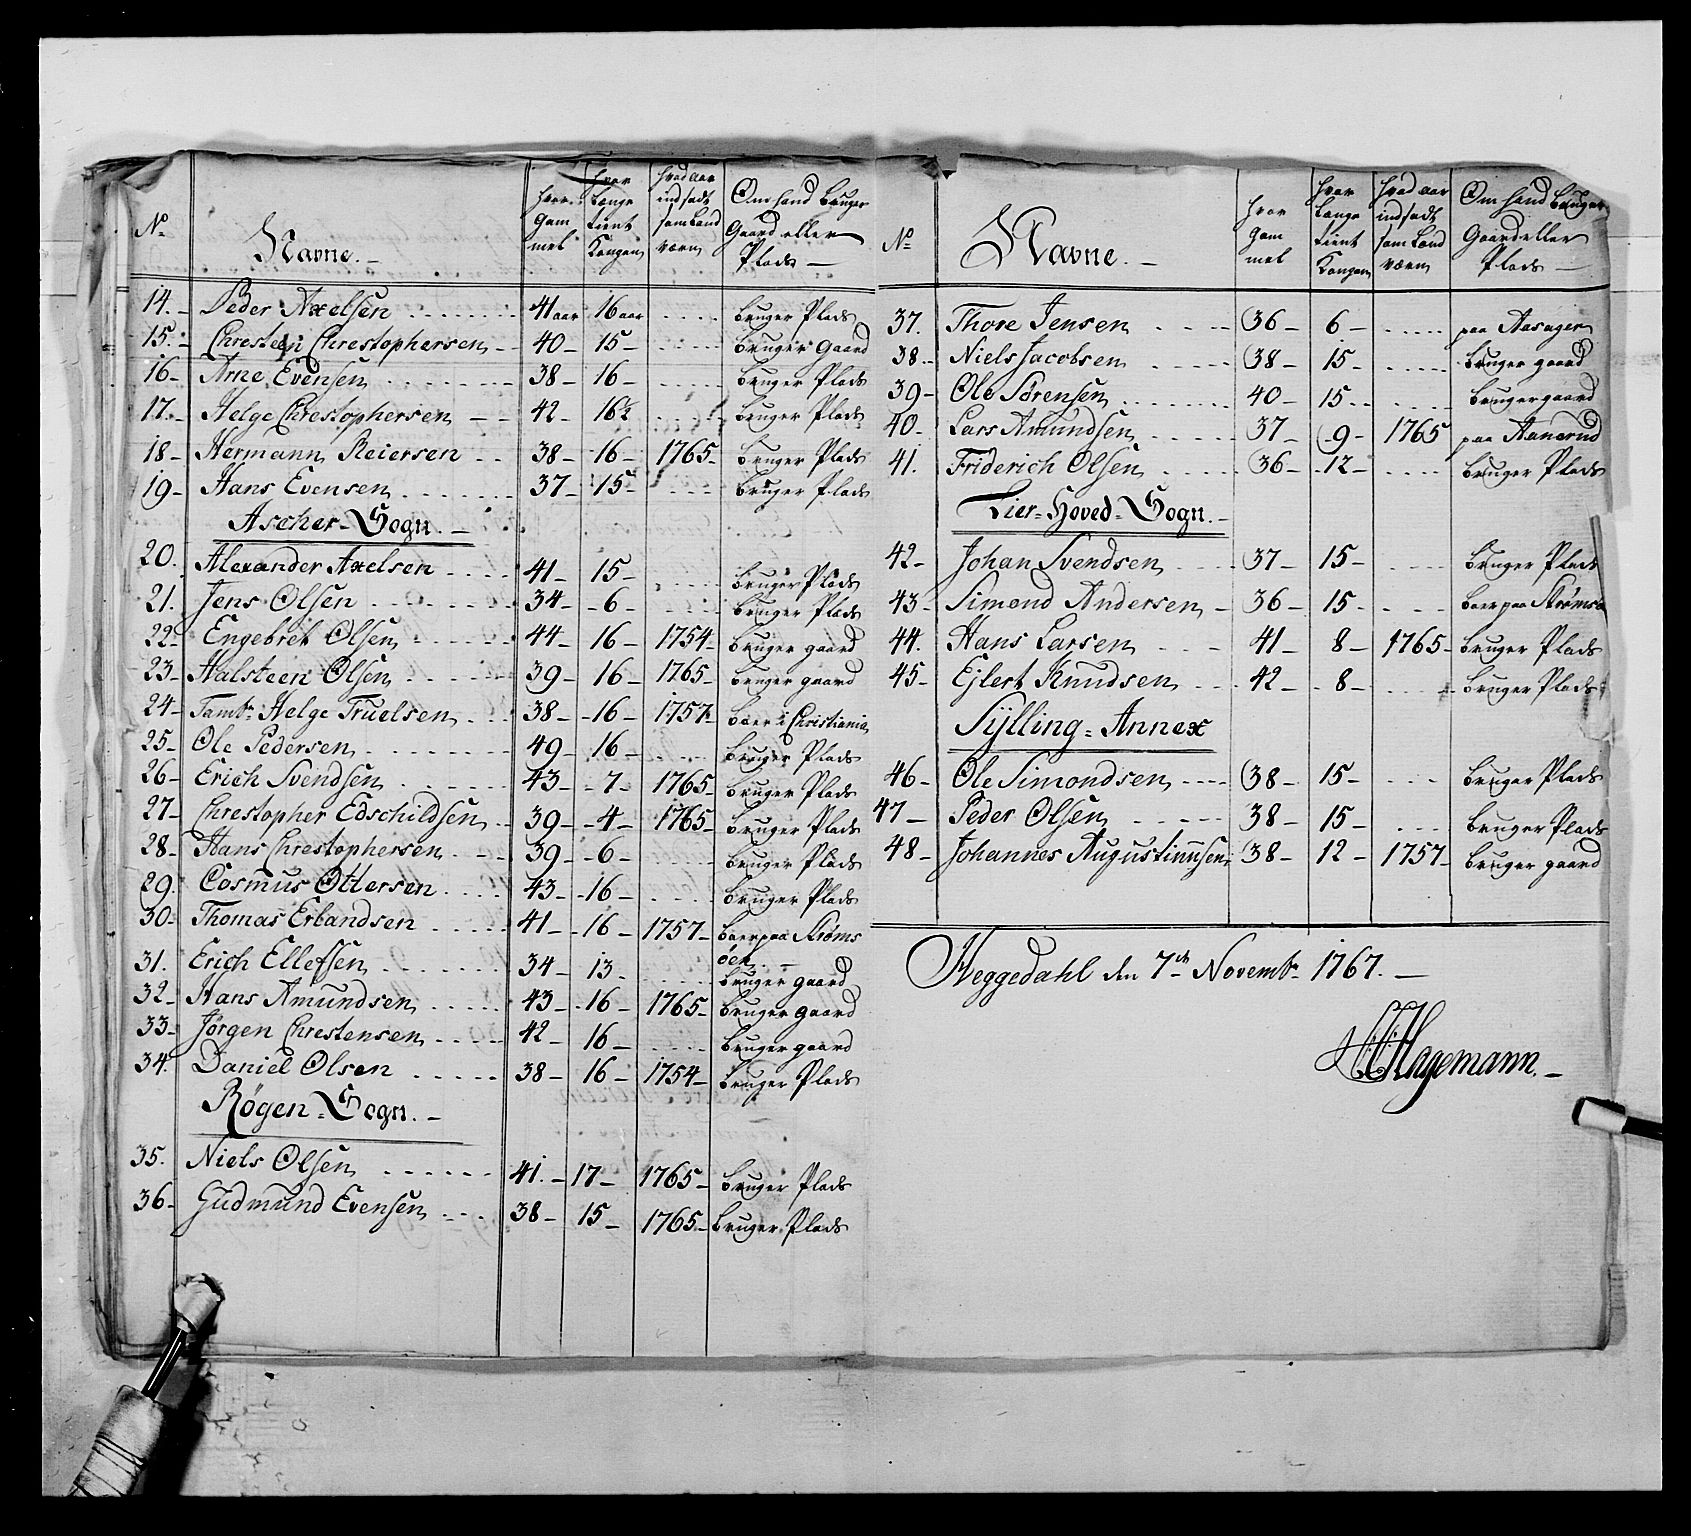 No Navne. hvor Gammel hvor Længe tient Kongen hvad aar indsadt som Land værn Om hand bruger Gaard eller Plads
14. Peder Axelsen 41 aar 16 aar bruger Plads
15. Christen Christophersen 40 15 bruger Gaard
16 Arne Evensen 38 16 bruger Plads
17. Helge Christophersen 42 16½ bruger Plads
18 Hermann Reiersen 38 16 1765 bruger Plads
19 Hans Evensen 37 15 bruger Plads
Ascher Sogn.
20. Alexander Axelsen 41 15 bruger Plads
21. Jens Olsen 34 6 bruger Plads
22 Engebret Olsen 44 16 1754 bruger gaard
23 Halsteen Olsen 39 16 1765 bruger gaard
24 Tambr Helge Truelsen 38 16 1757 boer i Christiania
25 Ole Pedersen 49 16 bruger Plads
26 Erich Svendsen 43 7 1765 bruger Plads
27 Christopher Edschildsen 39 4 1765 bruger Plads
28 Hans Christophersen 39 6 bruger Plads
29. Cosmus Ottersen 43 16 bruger Plads
30 Thomas Erbandsen 41 16 1757 boer paa Strøms
øen
31. Erich Ellefsen 34 13 bruger gaard
32 Hans Amundsen 43 16 1765 bruger gaard
33 Jørgen Christensen 42 16 bruger gaard
34. Daniel Olsen 38 16 1754 bruger Plads
Røgen Sogn.
35. Niels Olsen 41. 17 1765 bruger Plads
36 Gudmund Evensen 38 15 1765 bruger Plads
No Navne. hvor gammel hvor Længe tient Kongen hvad aar indsadt som Land værn Om hand bruger Gaard eller Plads
37. Thore Jensen 36 6 paa Aasager
38 Niels Jacobsen 38 15 bruger gaard
39 Ole Sørensen 40 15 bruger gaard
40 Lars Amundsen 37 9 1765 paa Aanerud
41. Friderich Olsen 36 12 bruger Plads
Lier Hoved Sogn.
42 Johan Svendsen 37 15 bruger Plads
43 Simond Andersen 36 15 boer paa Strømsø
44. Hans Larsen 41 8 1765 bruger Plads
45 Ejlert Knudsen 42 8 bruger Plads
Sylling Annex
46 Ole Simondsen 38 15 bruger Plads
47 Peder Olsen 38 15 bruger Plads
48 Johannes Augustinusen 38 12 1757 bruger gaard
Heggedahl den 7de Novembr 1767.
Hagemann.